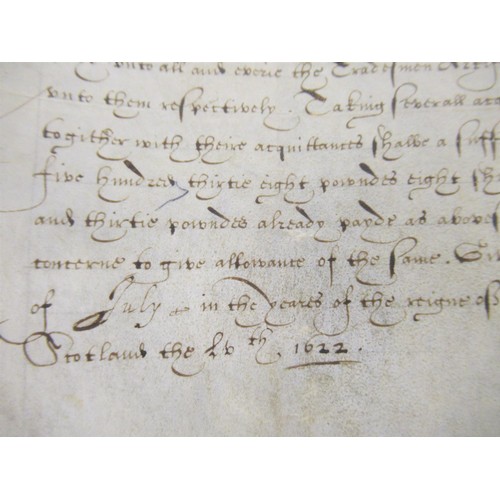 vnto all and everie the Tradesmen
vnto them respectively. Taking severall
togither with theire acquittances shalbe a suff
five hundred thirtie eight powndes eight
and thirtie powndes already payde as
concerne to give allowance of the same.
of July in the yeares of the reigne of
Scotland the Lvth. 1622.